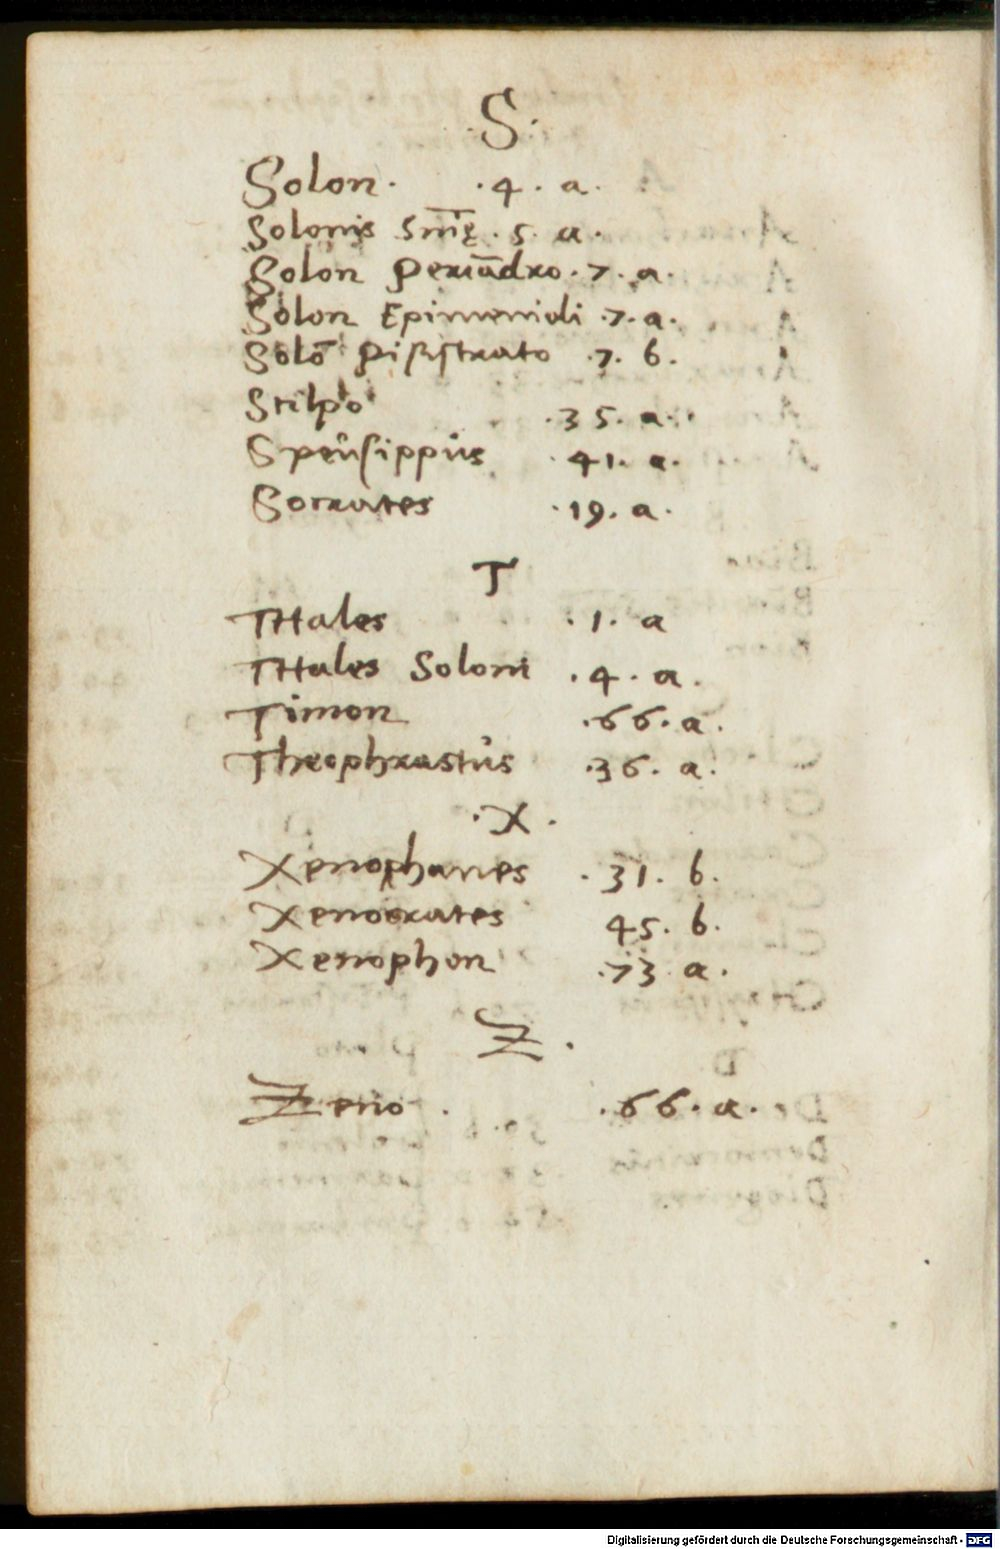 .S.
Solon. .4. a.
Solonis Sm̄ię. 5. a.
Solon Periādro. 7. a.
Solon Epimenidi .7. a.
Solō Pisistrato .7. b.
Stilpo .35. a.
Speusippus .41. a.
Socrates .19. a.
T
THales .1. a
THales Soloni .4. a.
Timon .66. a.
Theophrastus .36. a.
.X.
Xenophanes .31. b.
Xenocrates 45. b.
Xenophon .73 a.
Z.
Zeno . .66. a.
Digitalisierung gefördert durch die Deutsche Forschungsgemeinschaft - DFG